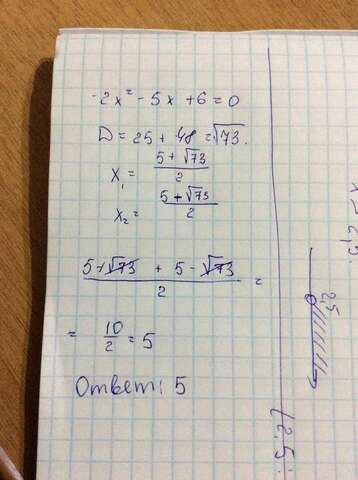 -2x² - 5x + 6 = 0
D = 25 + 48 = √73.
x₁ = (5 + √73)/2
x₂ = (5 + √73)/2
(5+√73 + 5 - √73)/2 =
= 10/2 = 5
Ответ: 5
2,5